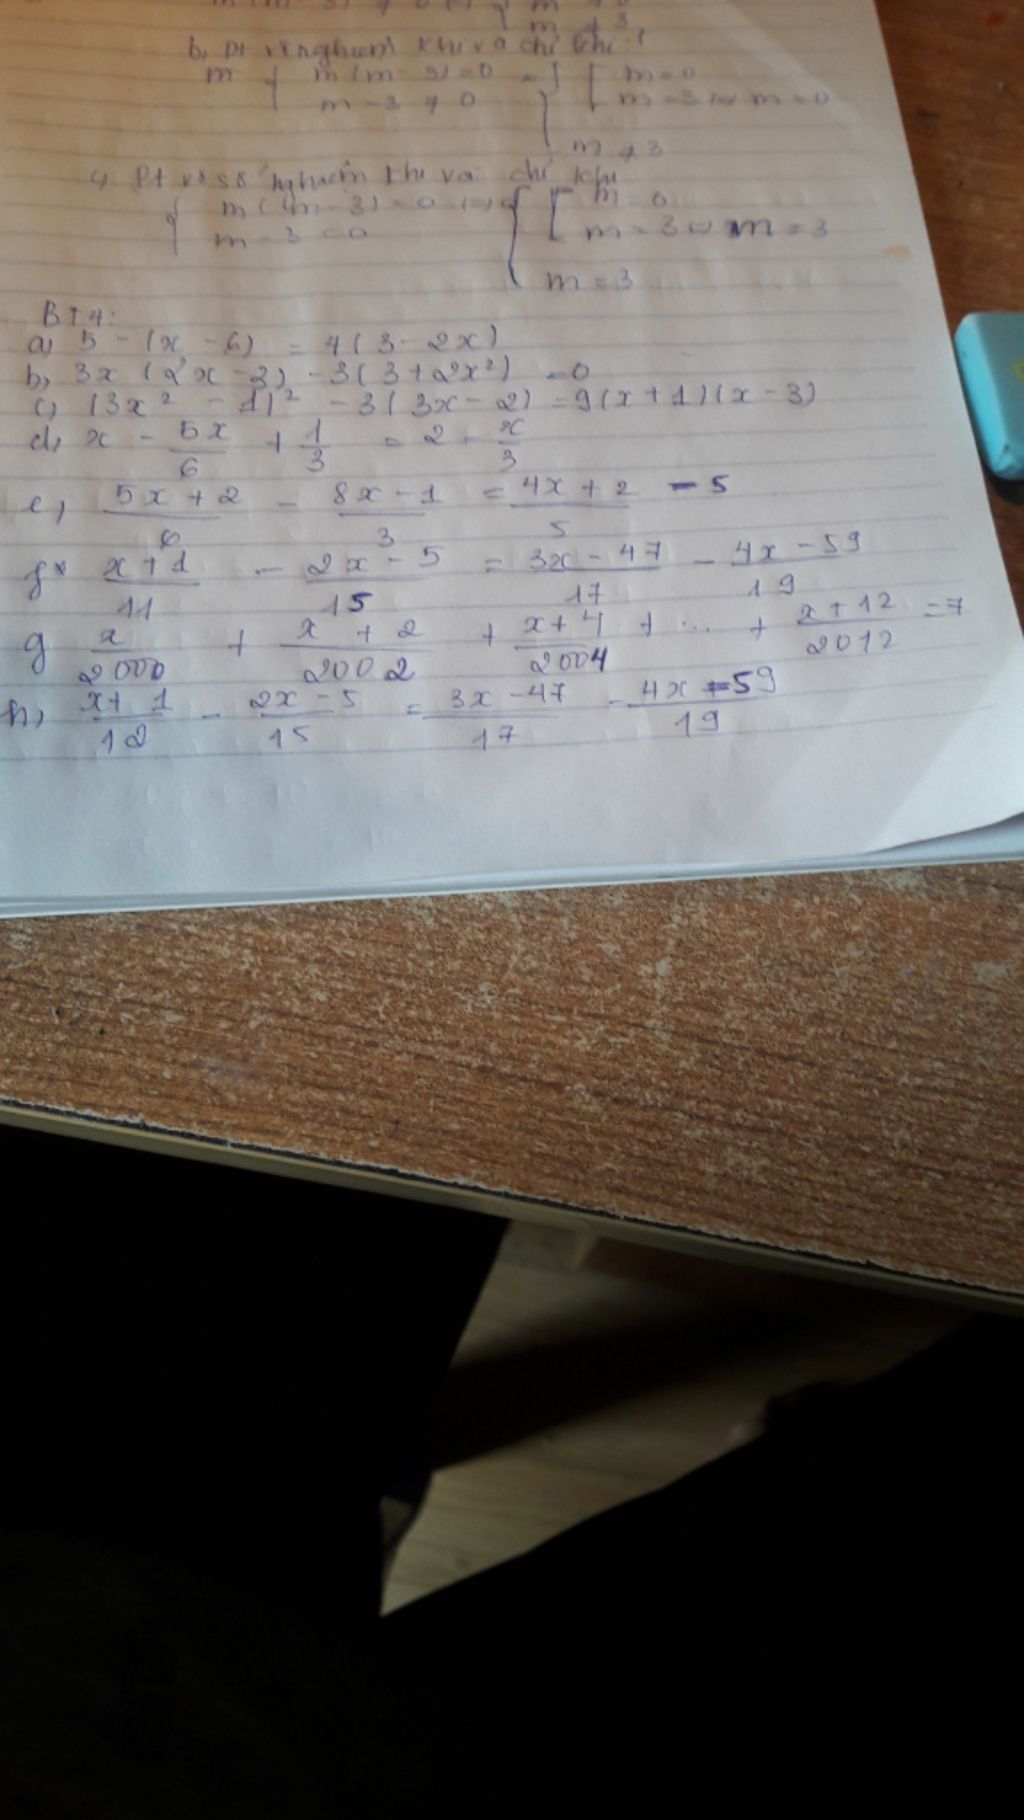 b, Pt vô nghiệm khi và chỉ khi
m { m(m-3)=0 ⇔ { [ m=0
m-3≠0 m=3 ⇔ m=0
m≠3
c, Pt vô số nghiệm khi và chỉ khi
{ m(m-3)=0 ⇔ { [ m=0
m-3=0 m=3 ⇔ m=3
m=3
BT4:
a, 5-(x-6) = 4(3-2x)
b, 3x(2x-3)-3(3+2x²) =0
c, (3x²-1)²-3(3x-2)=9(x+1)(x-3)
d, x - 5x/6 + 1/3 = 2 - x/3
e, (5x+2)/6 - (8x-1)/3 = (4x+2)/5 - 5
f* (x+1)/11 - (2x-5)/15 = (3x-47)/17 - (4x-59)/19
g x/2000 + (x+2)/2002 + (x+4)/2004 + ... + (x+12)/2012 =7
h, (x+1)/12 - (2x-5)/15 = (3x-47)/17 - (4x-59)/19